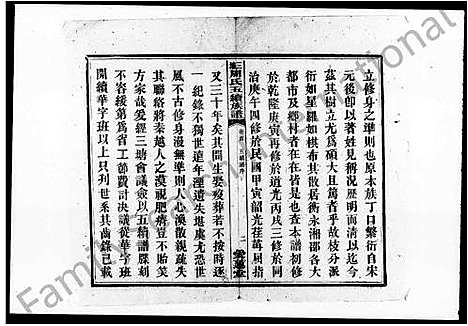 立修身之準則也原本族丁口繁衍自宋
元後卽以著姓見稱況歷明而清以迄今
茲其樹立尤為碩大且篤者乎故枝分派
衍如星羅如棋布其散居衡永湘邵各大
都市及鄉村者在在皆是也查本譜初修
於乾隆庚寅再修於道光丙戌三修於同
治庚午四修於民國甲寅韶光荏苒屈指
五續族譜
又三十年矣其間生婁疫葬若不按時逐
一紀錄不獨世遠年湮遺失堪虞尤恐世
風不古修身漫無準則人心渙散親疏失
其聯絡將秦越人之漠視肥瘠豈不貽笑
方家哉爰經三塘會議僉以五續譜牒刻
不容緩第為省工節費計決議從華字班
開續華字班以上只列世系其齒錄已載